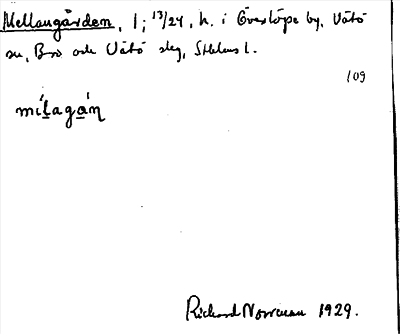 Mellangården, 1; 13/24, h. i Överlöpe by, Vätö
sn, Bro och Vätö slg, Sthlms l.
109
mílagán
Richard Norrman 1929.